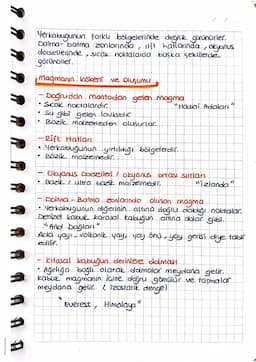 Yerkabuğunun farklı bölgelerinde değişik görünürler.
Dalma-Batma zonlarında, rift hatlarında, okyanus
dorsellerinde, sıcak noktalarda başka şekillerde
görünürler.
Magmanın Kökeni ve Oluşumu
- Doğrudan mantodan gelen magma
• Sıcak noktalardır. "Hawai Adaları"
• Su gibi gelen lavlardır.
• Bazik malzemeden oluşurlar.
- Rift Hatları
• Yerkabuğunun yırtıldığı bölgelerdir.
• Bazik malzemedir.
- Okyanus Dorselleri / okyanus ortası sırtları
• Bazik / ultra bazik malzemedir. "İzlanda"
- Dalma - Batma zonlarında oluşan magma
• Yerkabuğunun diğerinin altına doğru daldığı noktalar.
Denizel kabuk karasal kabuğun altına dalar gibi.
"And Dağları"
Ada yayı-volkanik yay, yay önü, yay gerisi diye tabir
edilir.
- Kıtasal kabuğun derinlere dalması
• Ağırlığa bağlı olarak dalmalar meydana gelir.
kabuk magmanın içine doğru gömülür ve topmalar
meydana gelir. (izostatik denge)
"Everest, Himalaya"